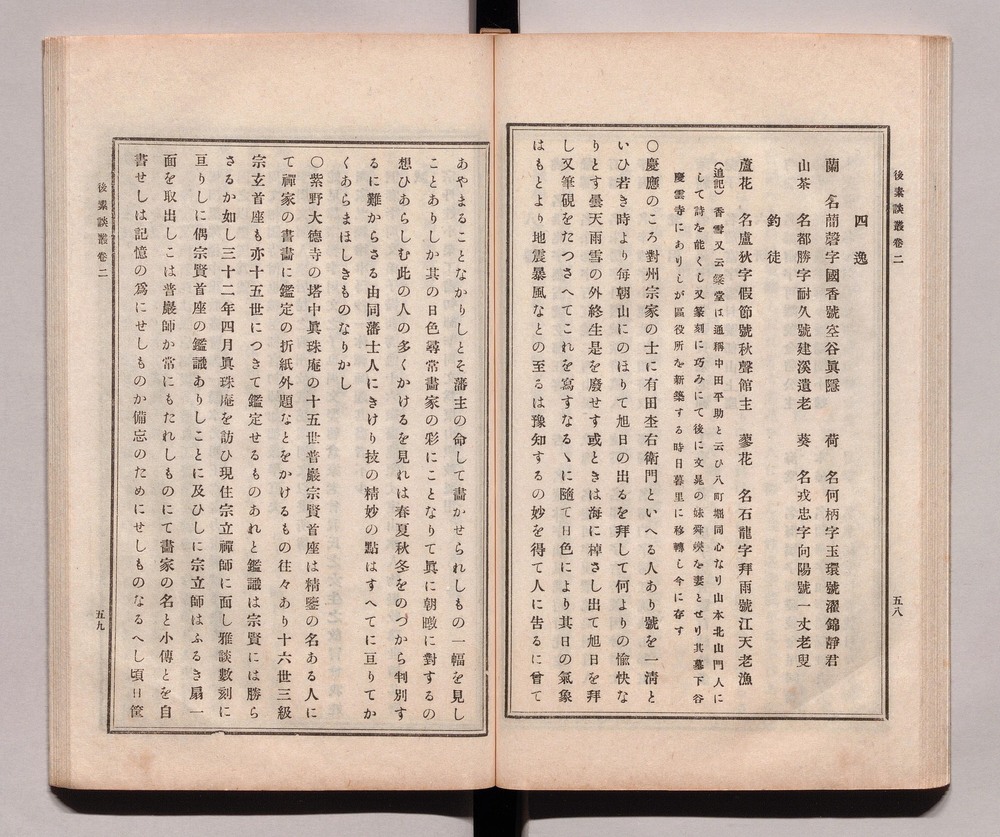 後素談叢卷二
四逸
蘭　名蕑磬字國香號空谷眞隱　荷　名何柄字玉環號濯錦靜君
山茶　名都勝字耐久號建溪遺老　葵　名戎忠字向陽號一丈老叟
釣徒
蘆花　名盧狄字假節號秋聲館主　蓼花　名石龍字拜雨號江天老漁
（追記）香雪又云 堂は通稱中田平助と云ひ八町堀同心なり山本北山門人に
して詩を能くし又篆刻に巧みにて後に文晁の妹舜 を妻とせり其墓下谷
慶雲寺にありしが區役所を新築する時日暮里に移轉し今に存す
〇慶應のころ對州宗家の士に有田杢右衞門といへる人あり號を一淸と
いひ若き時より每朝山にのほりて旭日の出るを拜して何よりの愉快な
りとす曇天雨雪の外終生是を廢せす或ときは海に棹さし出て旭日を拜
し又筆硯をたつさへてこれを寫すなるヽに隨て日色により其日の氣象
はもとより地震暴風なとの至るは豫知するの妙を得て人に告るに曾て
五八
あやまることなかりしとそ藩主の命して畵かせられしもの一幅を見し
ことありしか其の日色尋常畵家の彩にことなりて眞に朝暾に對するの
想ひあらしむ此の人の多くかけるを見れは春夏秋冬をのづから判別す
るに難からさる由同藩士人にきけり技の精妙の點はすへてに亘りてか
くあらまほしきものなりかし
〇紫野大德寺の塔中眞珠庵の十五世普巖宗賢首座は精鑒の名ある人に
て禪家の書畵に鑑定の折紙外題なとをかけるもの往々あり十六世三級
宗玄首座も亦十五世につきて鑑定せるものあれと鑑識は宗賢には勝ら
さるか如し三十二年四月眞珠庵を訪ひ現住宗立禪師に面し雅談數刻に
亘りしに偶宗賢首座の鑑識ありしことに及ひしに宗立師はふるき扇一
面を取出しこは普巖師か常にもたれしものにて畵家の名と小傳とを自
書せしは記憶の爲にせしものか備忘のためにせしものなるへし頃日筐
後素談叢卷二
五九